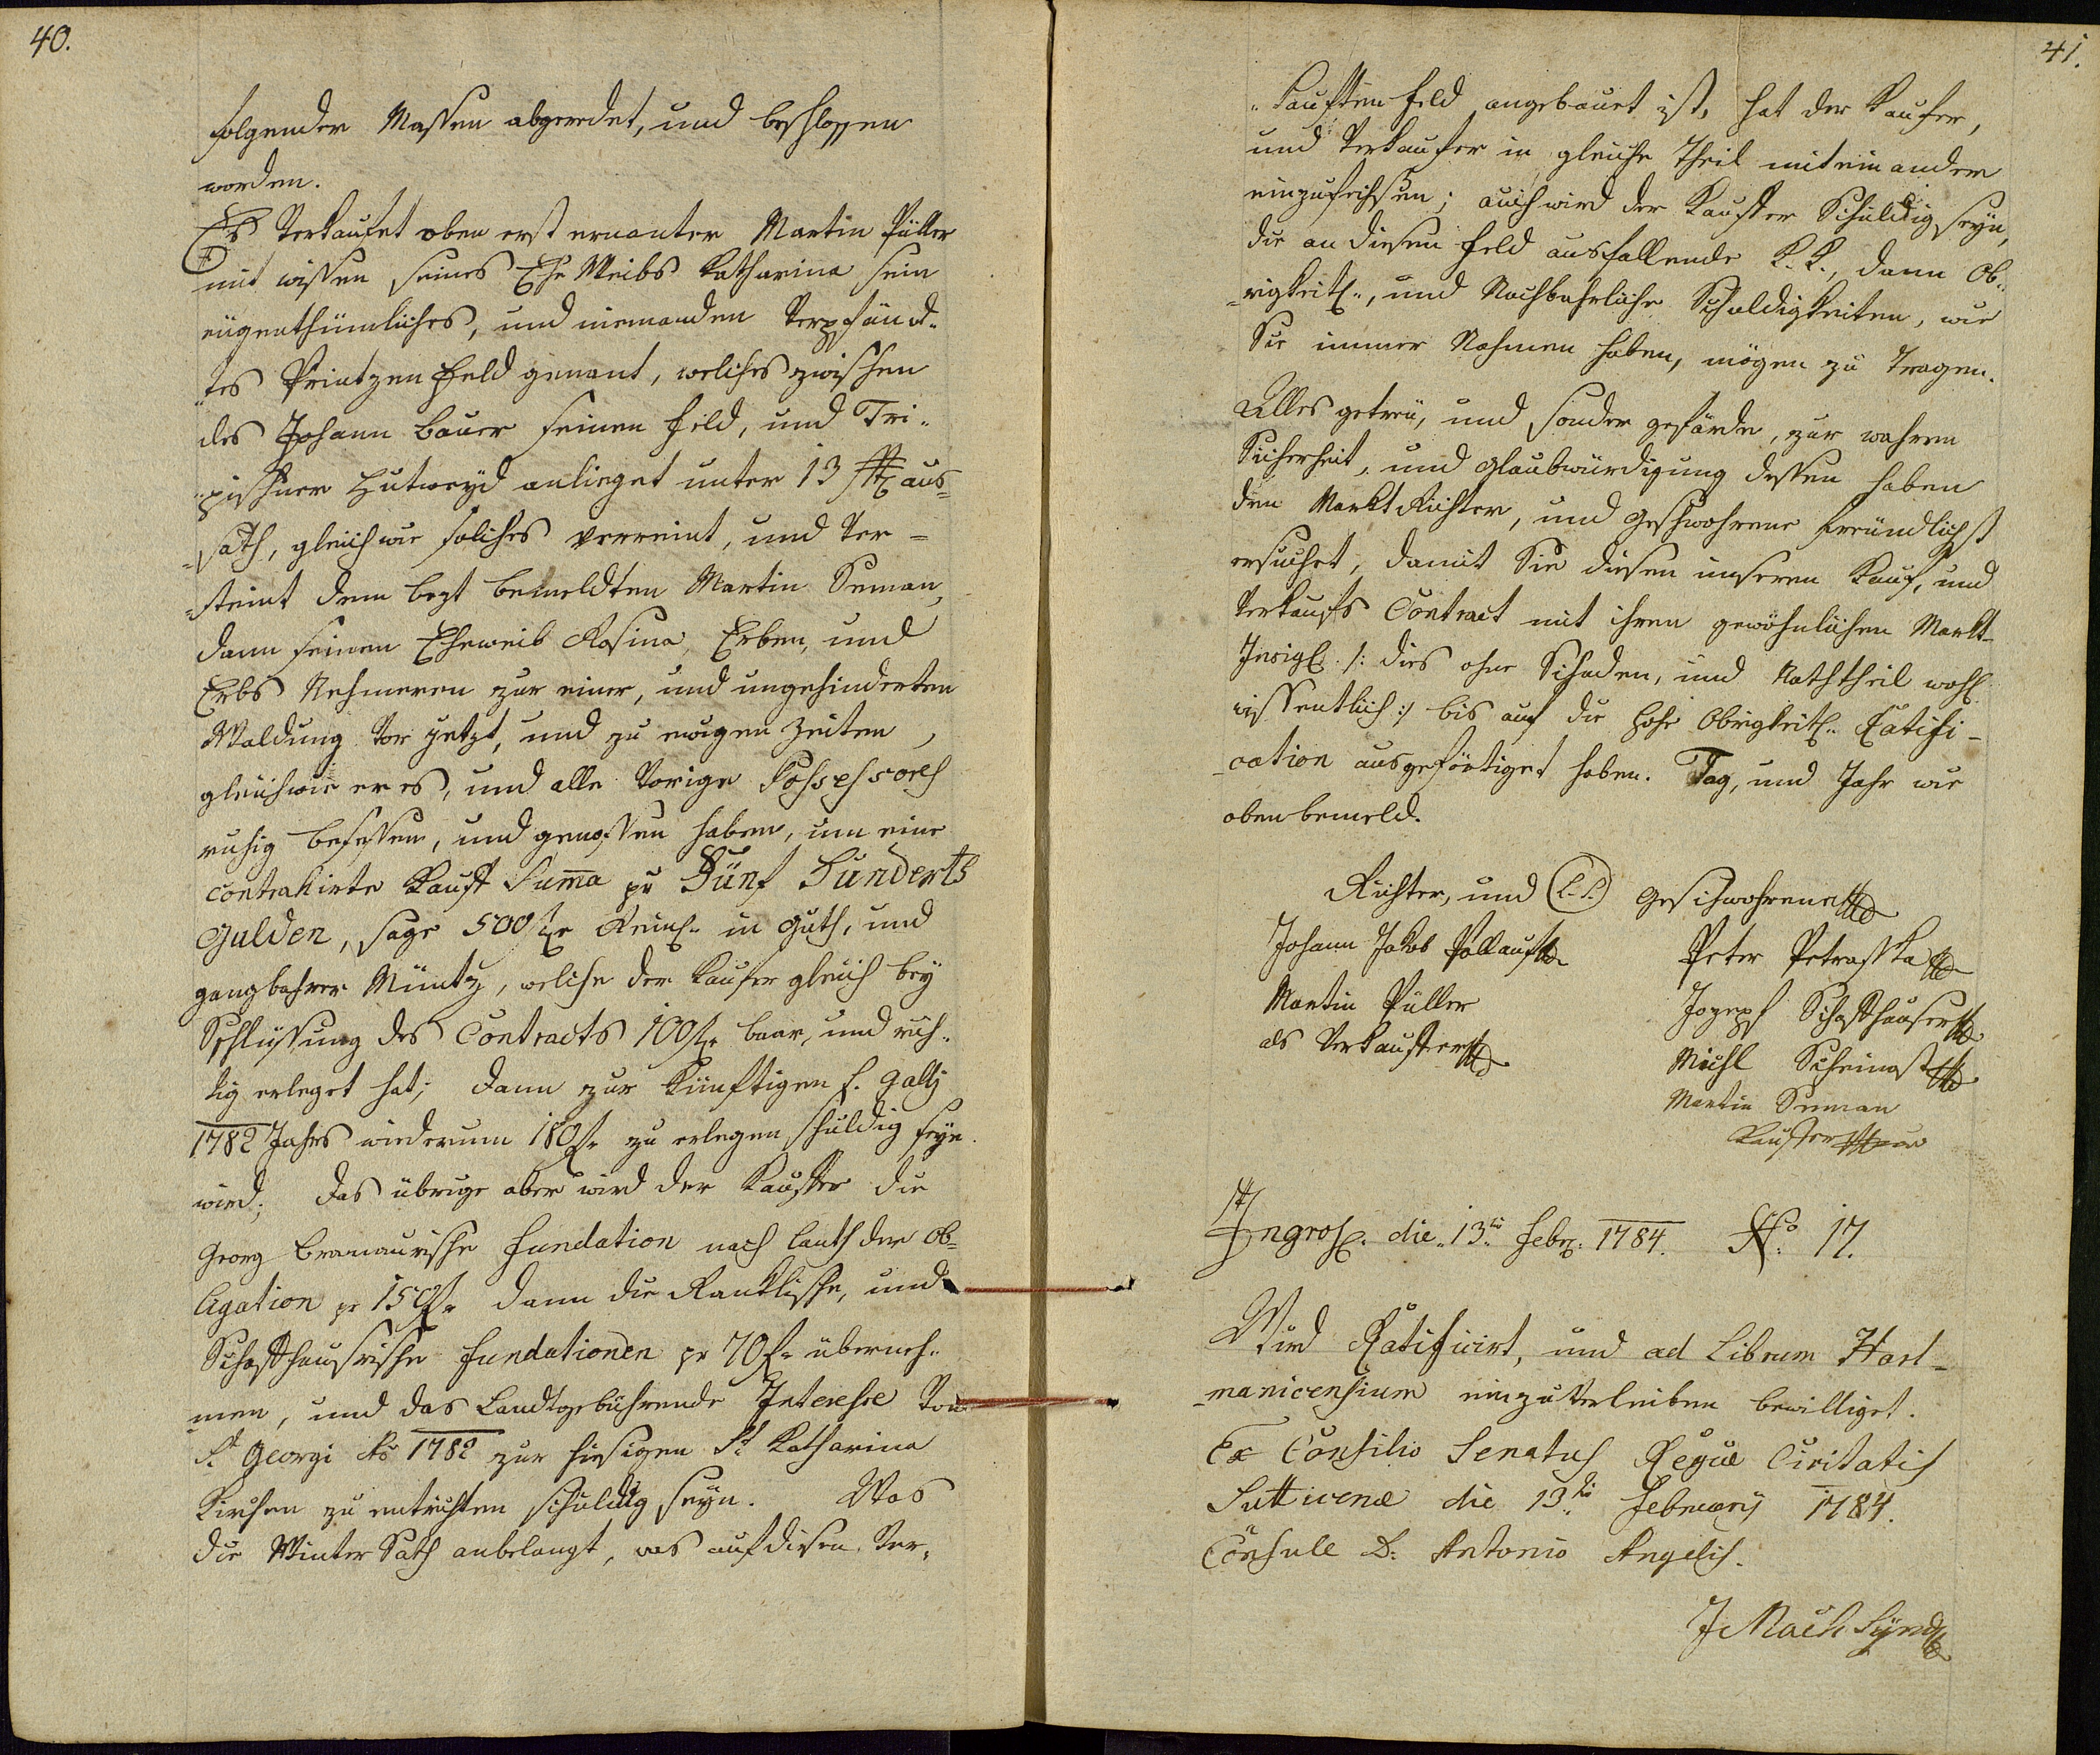 40.
folgender Massen abgeredet, und beschlossen
worden.
Es Verkaufet oben erst ernanter Martin Püller
mit wissen seines Ehe Weibs Katharina sein
eügenthümliches, und niemanden Verpfänd„
„tes Printzen Feld genant, welches zwischen
des Johann Bauer seinen Feld, und Tri„
„pischner Hutweyd anlieget unter 13 aus„
„sath, gleichwie solches verreint, und Ver=
„steint dem bemeldten Martin Seman,
dann seinem Eheweib Rosina, Erben, und
Erbs Nehmeren zur einer, und ungehinderten
Waldung Vor jetzt, und zu ewigen Zeiten,
gleichwie er es, und alle Vorige Possessores
ruhig besessen, und genossen haben, um eine
contrahirte Kauff Summa pr Fünf Hunderts
Gulden, sage 500 fl Reinl. in guth, und
gangbahrer Müntz, welche der Kaufer gleich bey
Schlüssung des Contracts 100 fl baar, und rich„
tig erleget hat; dann zur künftigen S. Gally
1782 Jahrs wiederum 180 fl zu erlegen schuldig seyn
wird; das übrige aber wird der Kauffer die
Georg fundation nach lauth der Ob„
ligation pr 150 fl dann die Ranklische, und
Schaffhauserische fundationen pr 70 fl überneh„
men, und das Landtgebührende Interesse Von
St Georgi Ao 1782 zur hiesigen St Katharina
Kirchen zu entrichten schuldig seyn. Was
die Winter Sath anbelangt, was auf diesen Ver„
41.
„kauften Feld angebauet ist, hat der Kaufer,
und Verkaufer in gleiche Theil miteinander
einzufechsen; auch wird der Kauffer Schuldig seyn,
die an diesen Feld ausfallende K. K., dann Ob„
„rigkeitl., und Nachbahrliche Schuldigkeiten, wie
Sie immer Nahmen haben, mögen zu Tragen.
Alles getreu, und sonder gefärde, zur wahren
Sicherheit, und Glaubwürdigung dessen haben
den Markt Richter, und Geschwohrene freundlichst
ersuchet, damit Sie diesen unseren Kauf, und
Verkaufs Contract mit ihren gewöhnlichen Markt-
Insigl. /: dies ohne Schaden, und Nachtheil wohl
wissentlich :/ bis auf die hohe Obrigkeitl. Ratifi-
-cation ausgefertiget haben. Tag, und Jahr wie
oben bemeld.
Richter, und (L.S.) Geschwohrene
Johann Jakob Pollauf
Peter Petraschka
Martin Püller
Joseph Schaffhauser
als Verkauffer
Michl Scheinost
Martin Seman
Kauffer
Ingross. die 13ti Febr. 1784. No 17.
Wird Ratificirt, und ad Librum Hart-
-manicensium einzuverleiben bewilliget.
Ex Consilio Senatus Regiae Civitatis
Sutticenae die 13ti February 1784.
Consule D: Antonio Angelis.
J Mach Synd